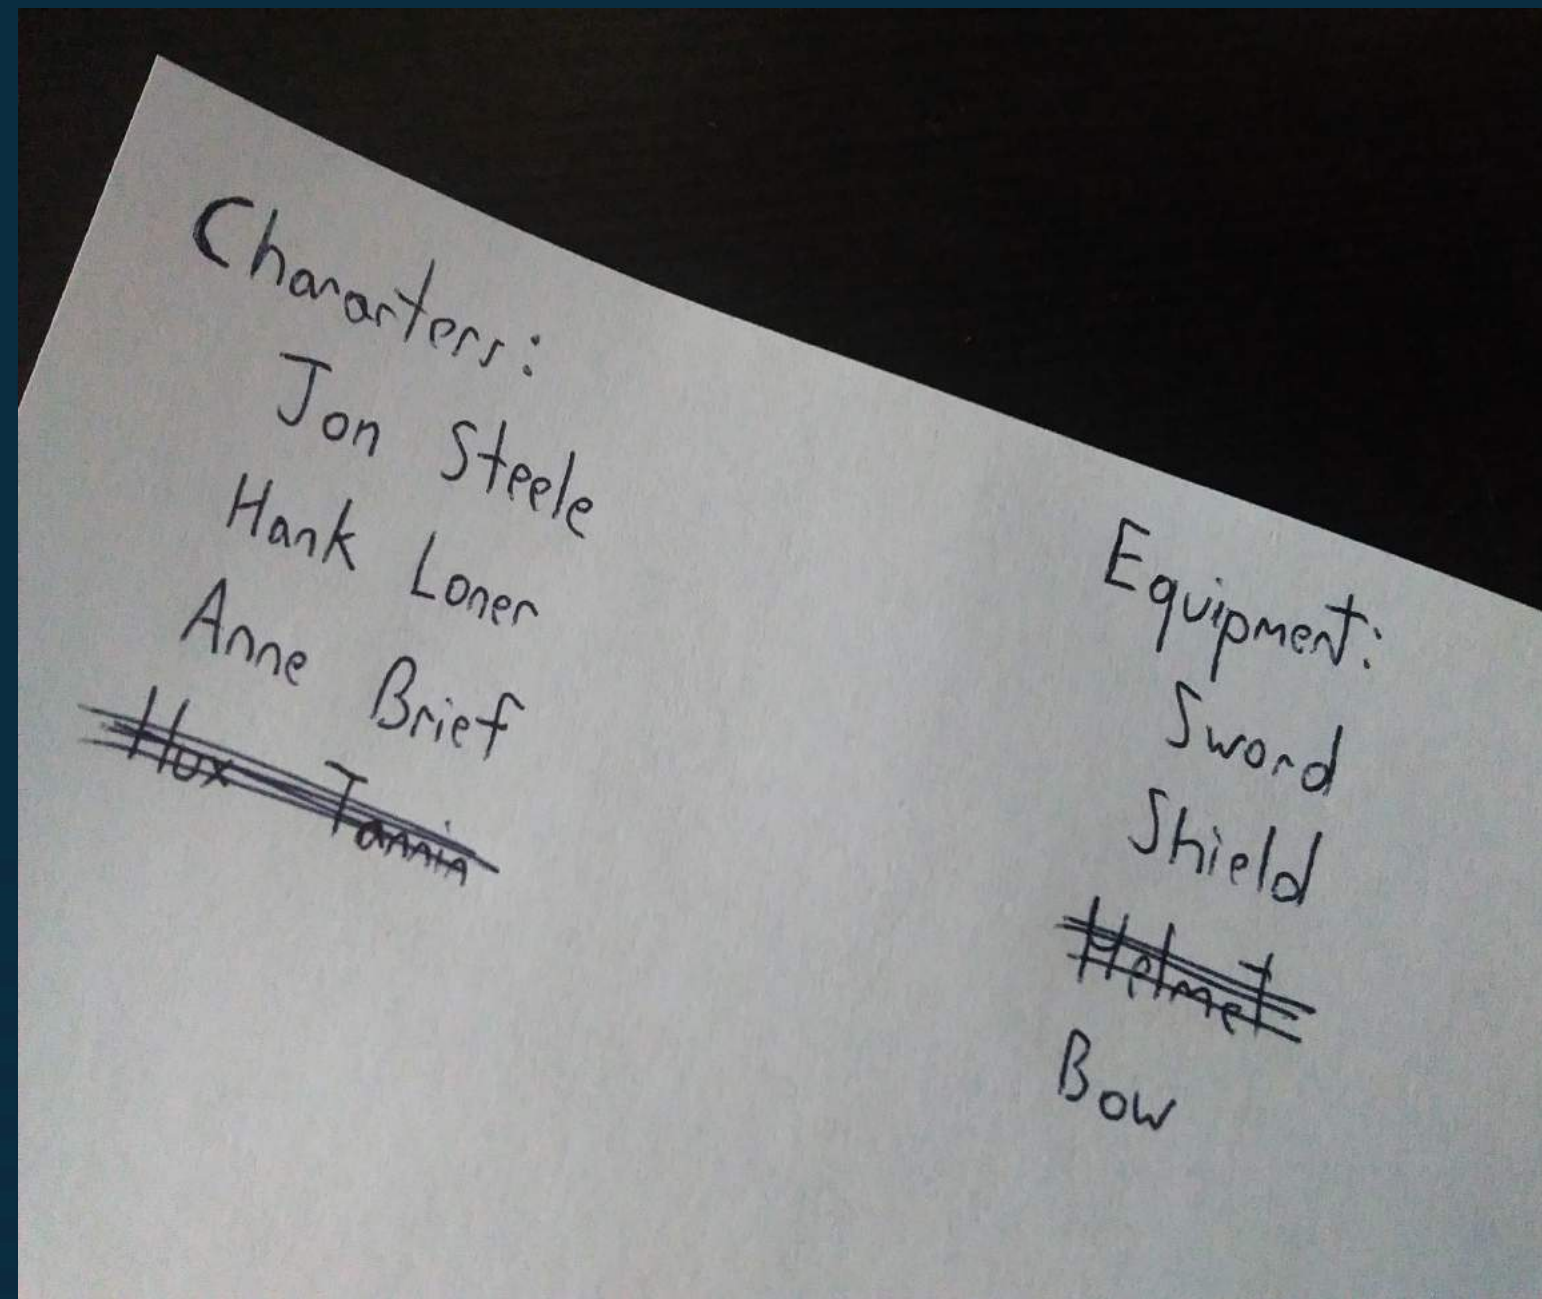 Chararters:
Jon Steele
Hank Loner
Anne Brief
Hux Tannin
Equipment:
Sword
Shield
Helmet
Bow